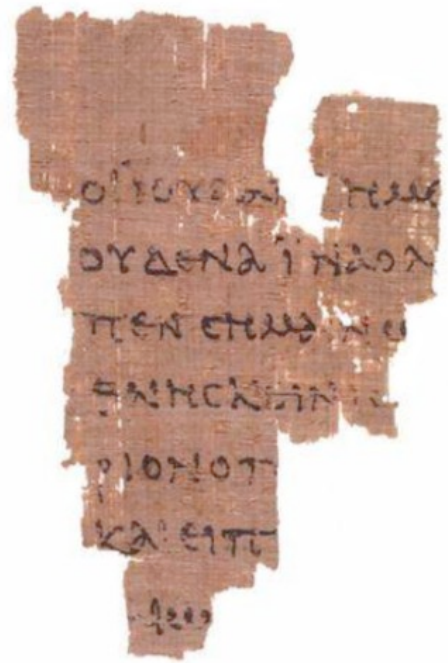 ΟΙΪΟΥΔΑΙ ΗΜ
ΟΥΔΕΝΑΪΝΑΟΛ
ΠΕΝϹΗΜΑΙΝΩ
ΘΝΗϹΚΕΙΝΙϹ
ΡΙΟΝΟΠ
ΚΑΙΕΙΠ